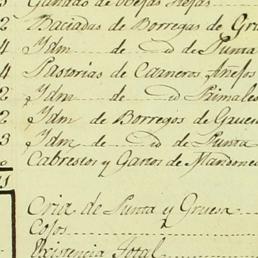 Ganado de Obejas Viejas
2 Baciadas de Borregas de Gra
4 Ydm de id de Punta
4 Pastorias de Carneros Añejos
2 Ydm de id Primales
2 Ydm de Borregos de
3 Ydm de id de Punta
Cabrestos y Gastos de
Cria de Punta y Gruesa
Cosos
Existencia Total